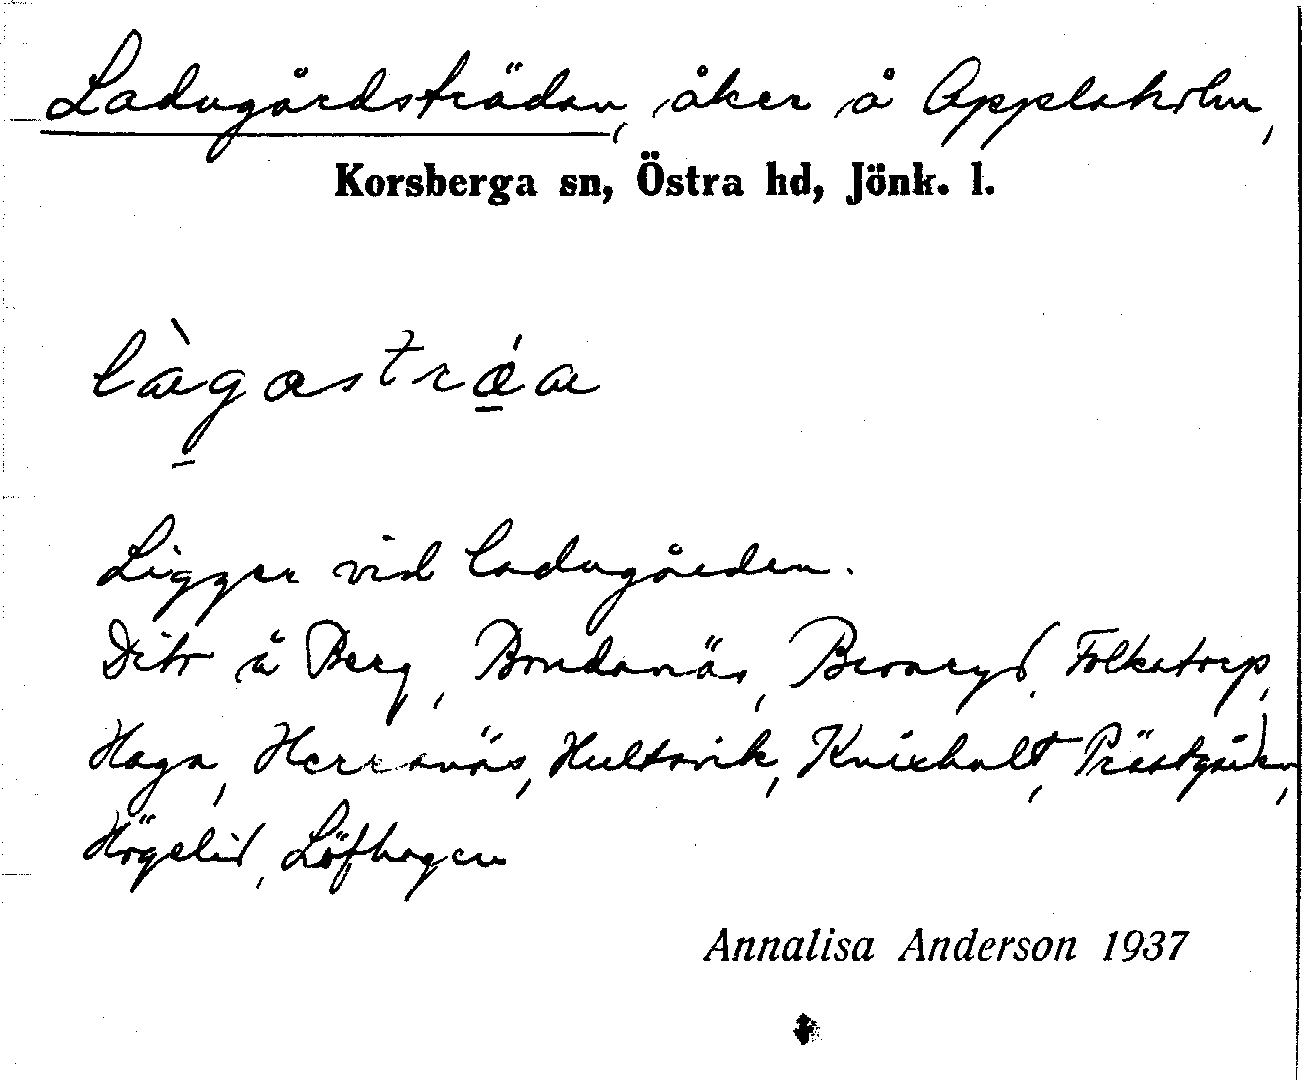 Ladugårdsträdan, åker å Applaholm,
Korsberga sn, Östra hd, Jönk. l.
làgastrǽa
Ligger vid ladugården.
Dito å Berg, Bondanäs, Broaryd, Folkatorp,
Haga, Herranäs, Hultsvik, Knixhult, Prästgården,
Högelid, Löfhagen
Annalisa Anderson 1937